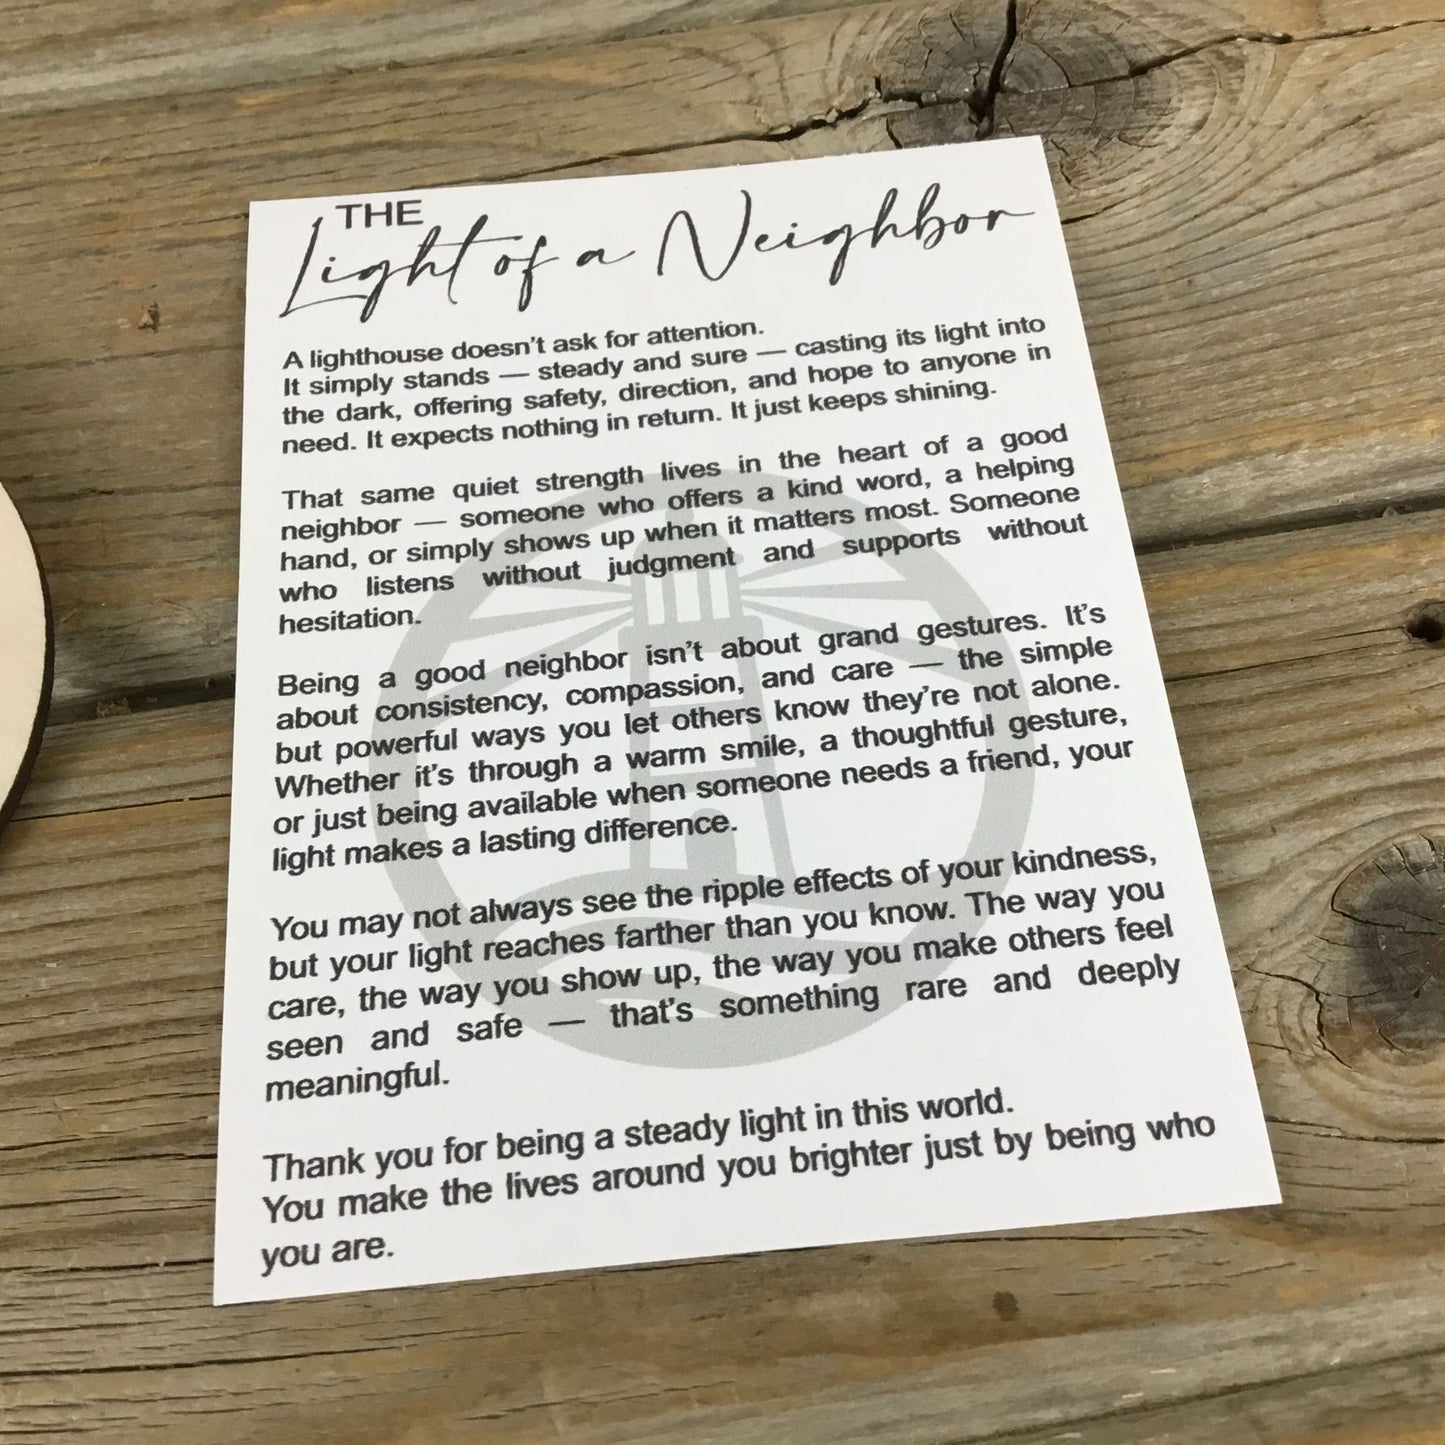 THE
Light of a Neighbor
A lighthouse doesn't ask for attention.
It simply stands — steady and sure — casting its light into
the dark, offering safety, direction, and hope to anyone in
need. It expects nothing in return. It just keeps shining.
That same quiet strength lives in the heart of a good
neighbor — someone who offers a kind word, a helping
hand, or simply shows up when it matters most. Someone
who listens without judgment and supports without
hesitation.
Being a good neighbor isn't about grand gestures. It's
about consistency, compassion, and care — the simple
but powerful ways you let others know they're not alone.
Whether it's through a warm smile, a thoughtful gesture,
or just being available when someone needs a friend, your
light makes a lasting difference.
You may not always see the ripple effects of your kindness,
but your light reaches farther than you know. The way you
care, the way you show up, the way you make others feel
seen and safe — that's something rare and deeply
meaningful.
Thank you for being a steady light in this world.
You make the lives around you brighter just by being who
you are.